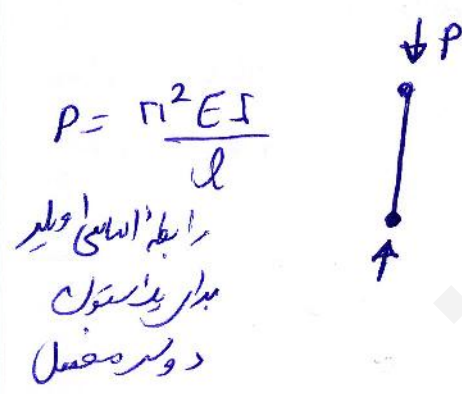 P
P = π²EI
l
رابطه اساسی اویلر
برای یک ستون
دو سر مفصل